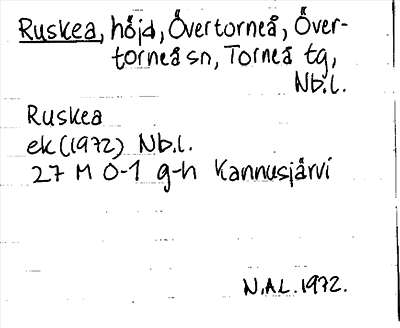 Ruskea, höjd, Övertorneå, Över-
torneå sn, Torneå tg,
Nb.l.
Ruskea
ek (1972) Nb.l.
27 M 0-1 g-h Kannusjärvi
N.Äl. 1972.